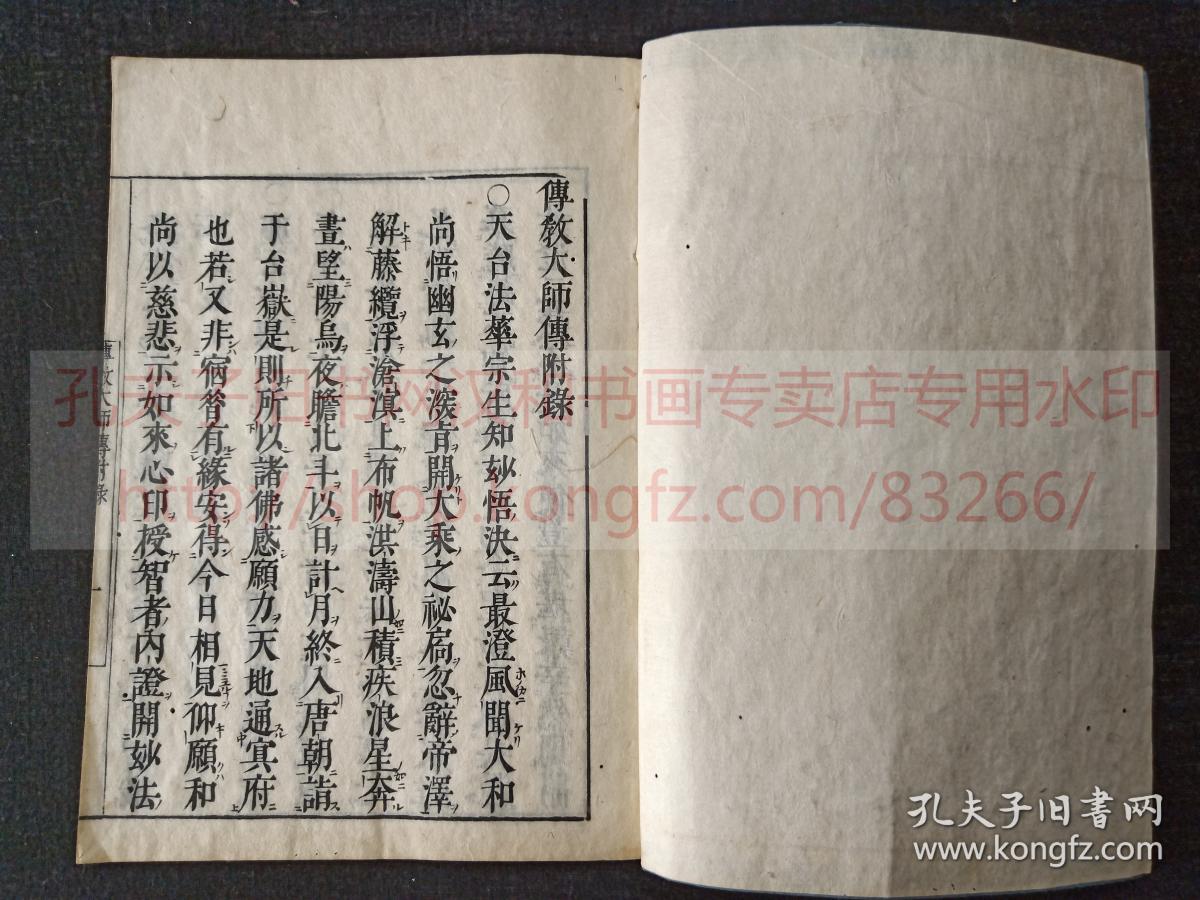 傳敎大師傳附錄
○天台法華宗生知玅悟決云最澄風聞大和
尚悟幽玄之深旨開大乘之祕扃忽辭帝澤
解藤纜浮滄溟上布帆洪濤山積疾浪星奔
晝望陽烏夜瞻北斗以日計月終入唐朝詣
于台嶽是則所以諸佛感願力天地通冥府
也若又非宿答有緣安得今日相見仰願和
尚以慈悲示如來心印授智者內證開妙法
傳敎大師傳附錄
一
孔夫子旧书网汉科书画专卖店专用水印
http://shop.kongfz.com/83266/
孔夫子旧书网
www.kongfz.com